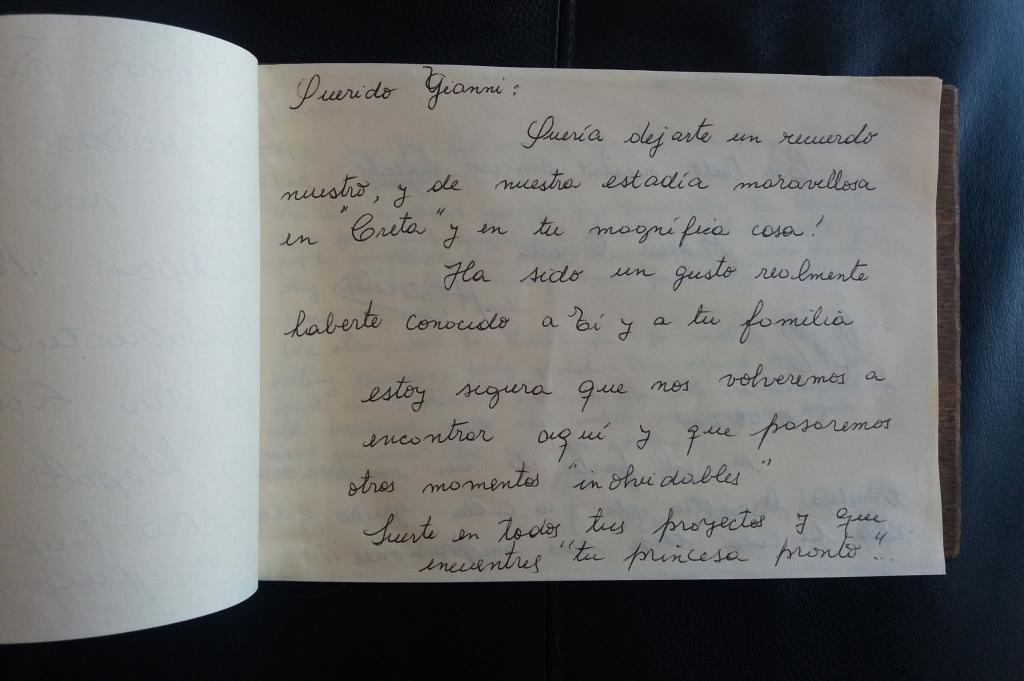 Querido Gianni:
Quería dejarte un recuerdo
nuestro, y de nuestra estadía maravellosa
en "Creta" y en tu magnífica casa!
Ha sido un gusto realmente
haberte conocido a Tí y a tu familia
estoy segura que nos volveremos a
encontrar aquí y que pasaremos
otros momentos "inolvidables"
Suerte en todos tus proyectos y que
encuentres "tu princesa pronto"...